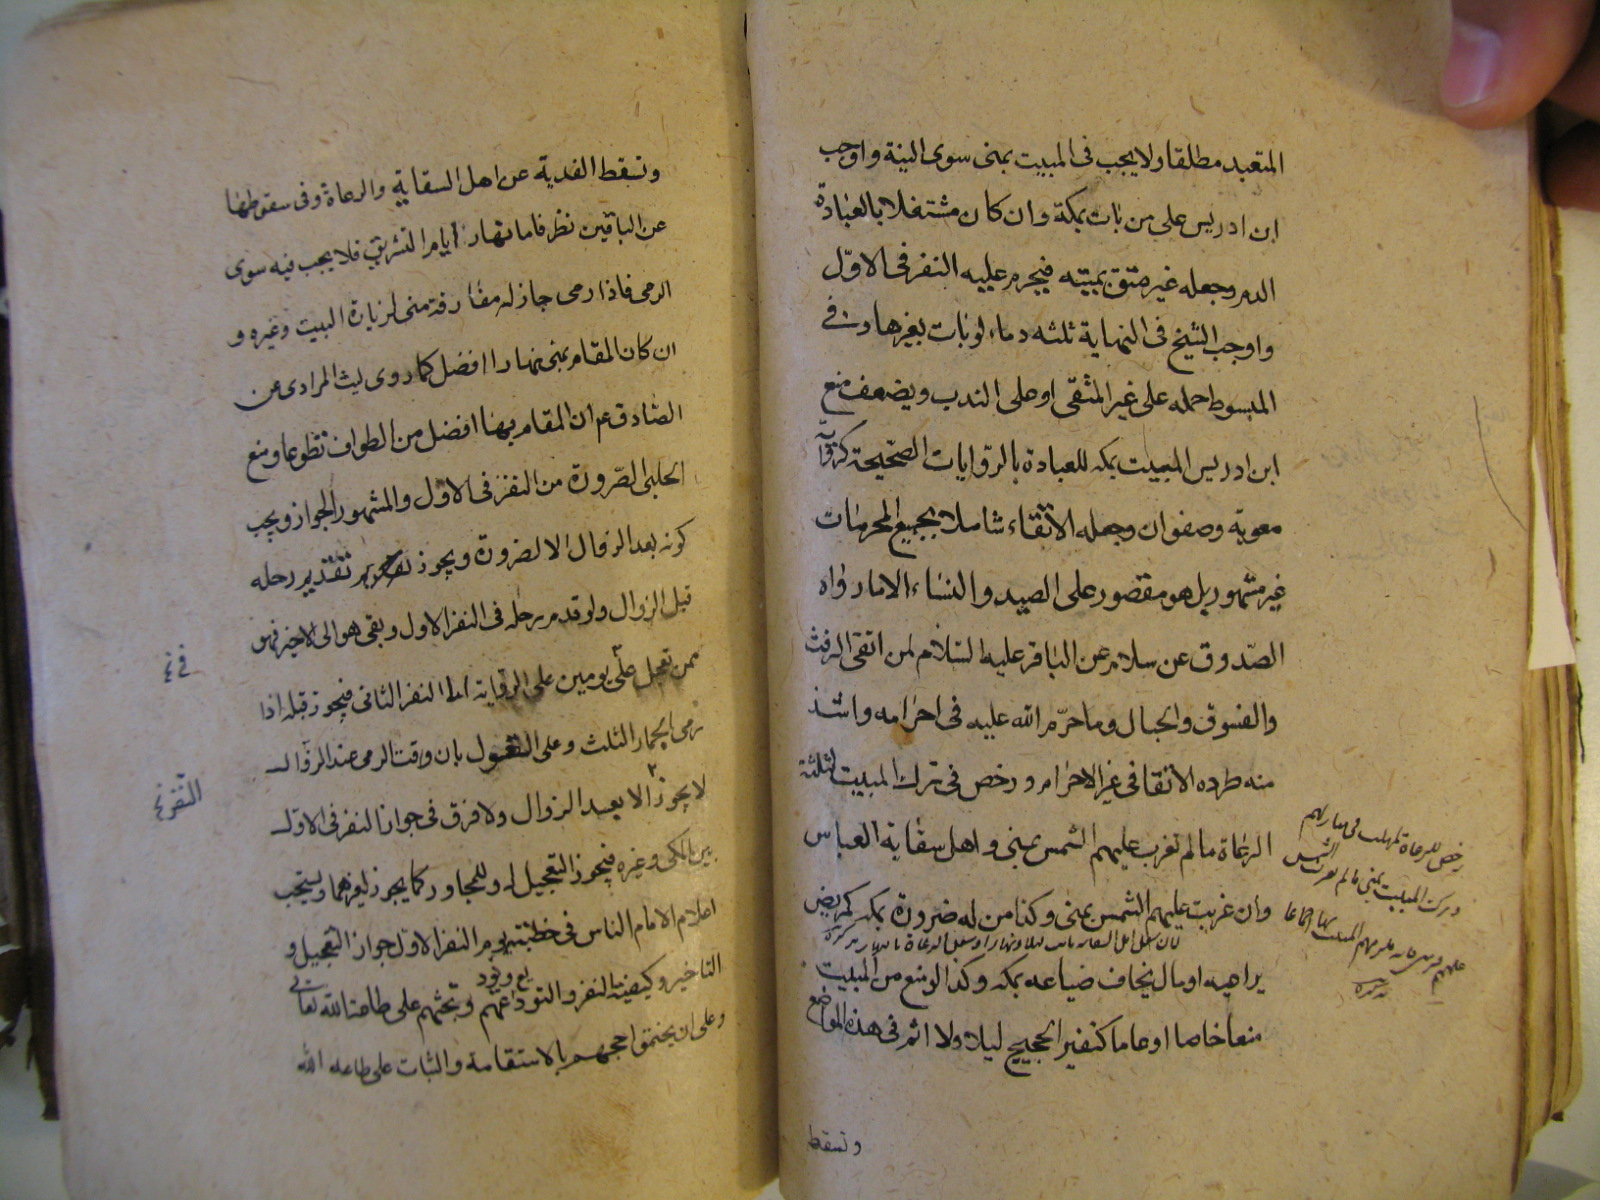 المتعبد مطلقا ولا يجب فى المبيت بمنى سوى النية واوجب
ابن ادريس على من بات بمكة وان كان مشتغلا بالعبادة
الدم وجعله غير متق بمبيته فيحرم عليه النفر فى الاوّل
واوجب الشيخ فى النهاية ثلثه دماء لو بات بغيرها وفى
المبسوط حمله على غير المتقى او على الندب ويضعف منع
ابن ادريس المبيت بمكه للعبادة بالروايات الصحيحة كرواية
معوية وصفوان وجعله الاتقاء شاملا لجميع المحرمات
غير مشهور بل هو مقصور على الصيد والنساء الا ما رواه
الصّدوق عن سلام عن الباقر عليه السّلام لمن اتقى الرفث
والفسوق والجدال وما حرّم الله عليه فى احرامه واشذ
منه طرده الاتقا فى غير الاحرام ورخص فى ترك المبيت لثلثة
الرعاة ما لم تغرب عليهم الشمس بمنى واهل سقاية العباس
وان غربت عليهم الشمس بمنى وكذا من له ضرورة بمكه كمريض
يراعيه او مال يخاف ضياعه بمكه وكذا لو منع من المبيت
منعا خاصا او عاما كنفير الحجيج ليلا ولا اثم فى هذه المواضع
وتسقط
وترك المبيت بمنى ما لم تغرب الشمس
وتسقط الفدية عن اهل السقاية والرعاة وفى سقوطها
عن الباقين نظر فاما نهار ايام التشريق فلا يجب فيه سوى
الرمى فاذا رمى جاز له مفارقة منى لزيارة البيت وغيره و
ان كان المقام بمنى نهارا افضل كما روى ليث المرادى عن
الصّادق عم ان المقام بها افضل من الطواف تطوعا ومنع
الحلبى الصّرورة من النفر فى الاول والمشهور الجواز ويجب
كونه بعد الزوال الا لضرورة ويجوز تقديم رحله
قبل الزوال ولو قدم رحله فى النفر الاول وبقى هو الى الاخير فهو
ممن تعجل فى يومين على الرواية اما النفر الثانى فيجوز قبله اذا
رمى الجمار الثلث وعلى القول بان وقت الرمى عند الزوال
لا يجوز الا بعد الزوال ولا فرق فى جواز النفر فى الاول
بين المكى وغيره فيجوز التعجيل له وللمجاور كما يجوز لغيرهما ويستحب
اعلام الامام الناس فى خطبته يوم النفر الاول جواز التعجيل و
التاخير وكيفية النفر والتوديع ويودعهم ويحثهم على طاعة الله تعالى
وعلى ان يختموا حجهم بالاستقامة والثبات على طاعه الله